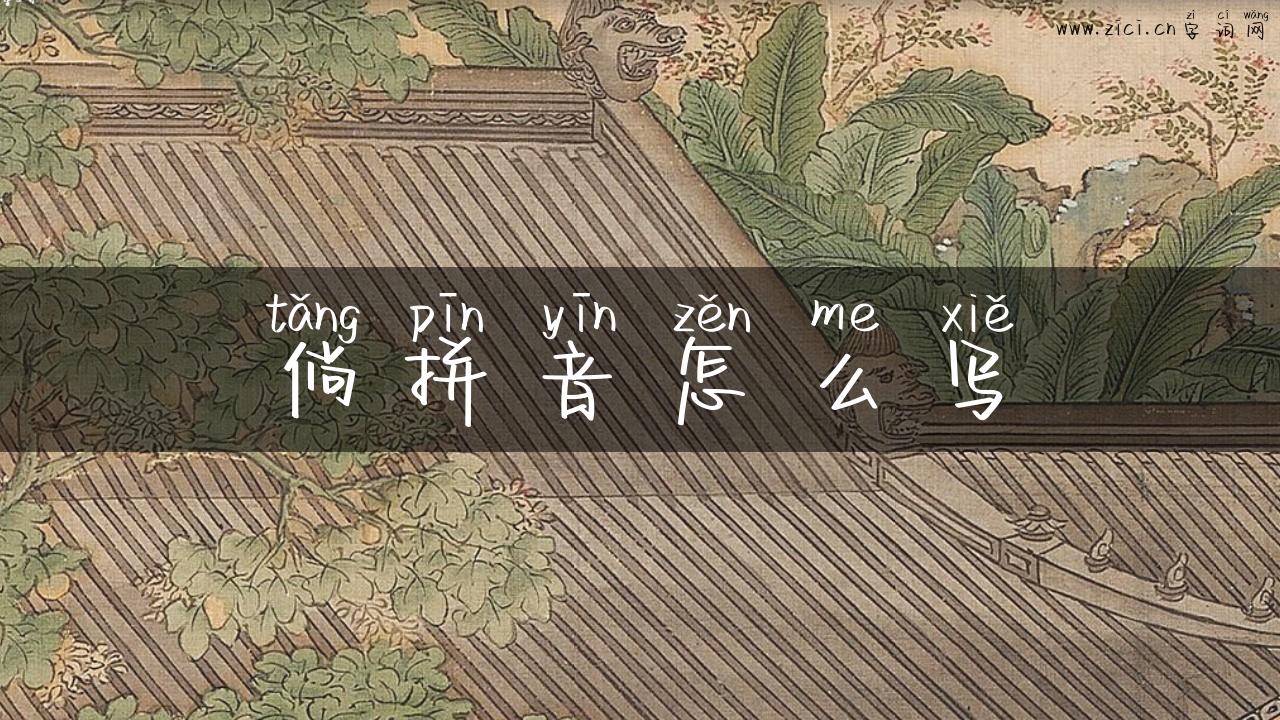 zì cí wǎng
www.zici.cn 字词网
tǎng pīn yīn zěn me xiě
倘拼音怎么写